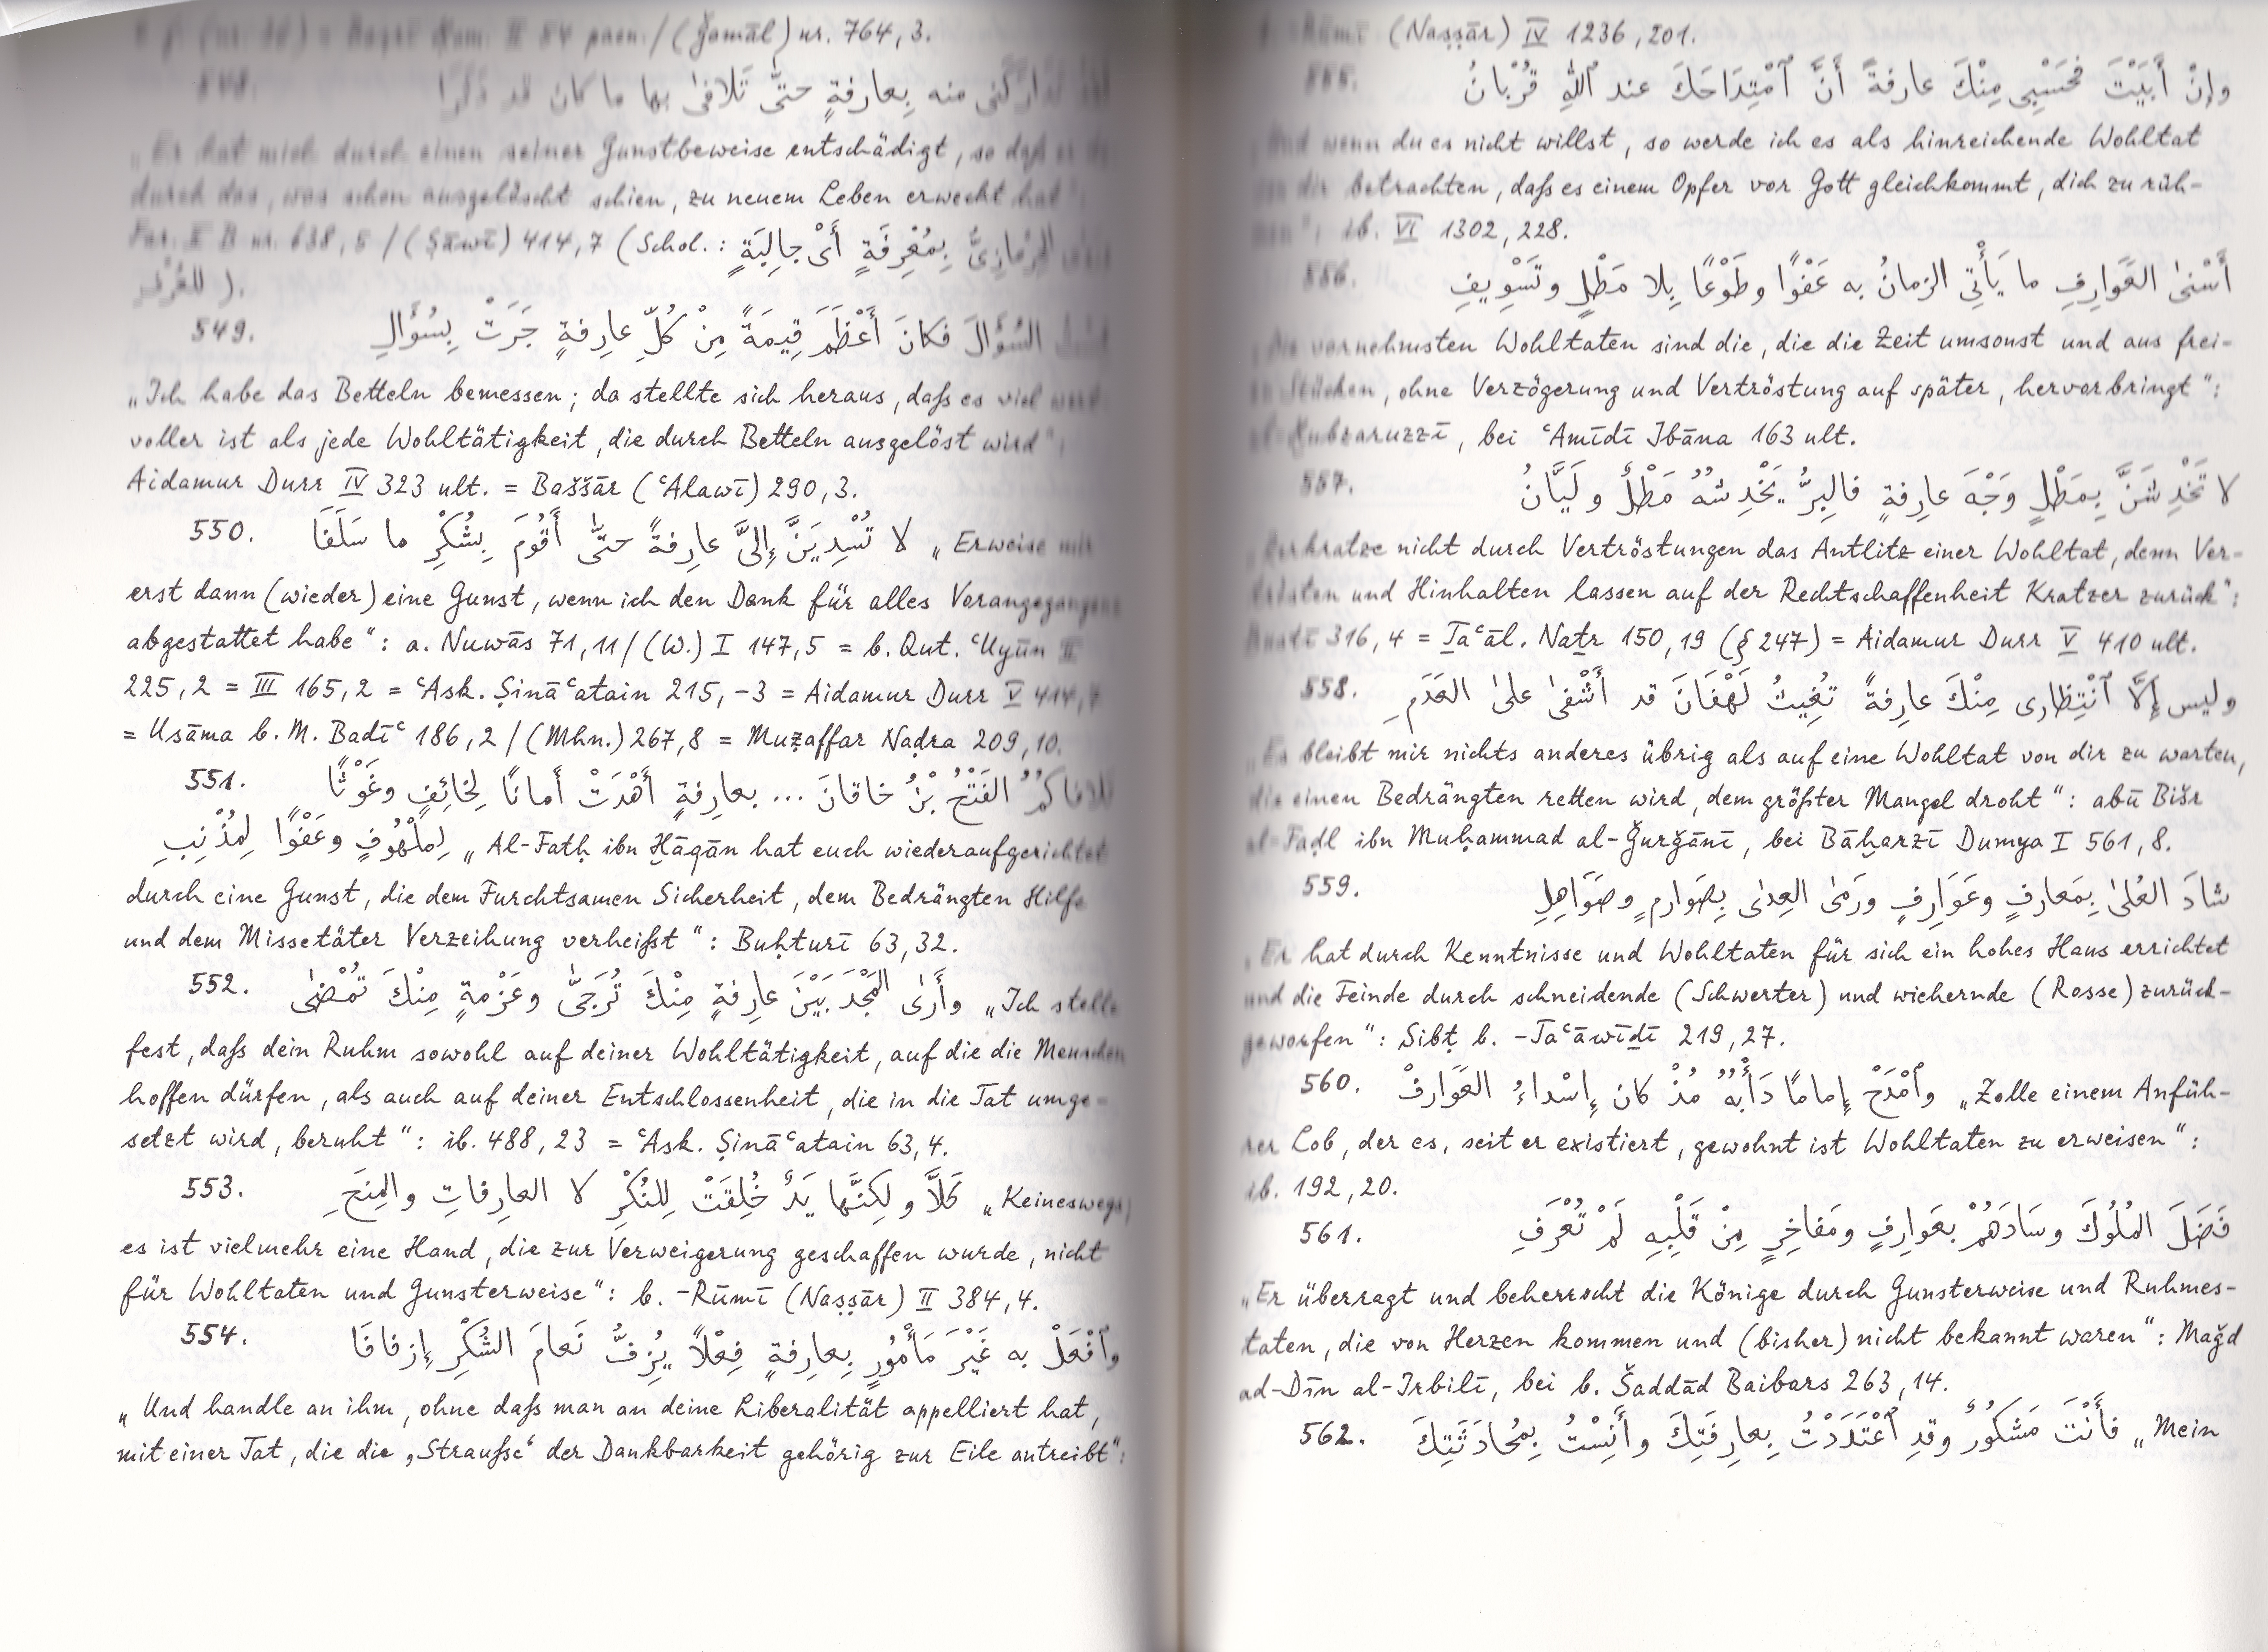 (Ǧamāl) nr. 764,3.
548. منه بِعارِفةٍ حتّى تَلافىٰ بها ما كان قد
„Er hat mich durch einen seiner Gunstbeweise entschädigt, so daß er
durch das, was schon ausgelöscht schien, zu neuem Leben erweckt hat":
Far. II B nr. 638,5 / (Ṣāwī) 414,7 (Schol.: بِمُعْرِفَةٍ أَىْ جالِبَةٍ
).
549. السُؤَالَ فكانَ أَعْظَمَ قِيمَةً مِنْ كُلِّ عارِفةٍ جَرَتْ بِسُؤَالِ
„Ich habe das Betteln bemessen; da stellte sich heraus, daß es viel wert-
voller ist als jede Wohltätigkeit, die durch Betteln ausgelöst wird":
Aidamur Durr IV 323 ult. = Baššār (ʿAlawī) 290,3.
550. لا تُسْدِيَنَّ إِلىَّ عارِفةً حتّىٰ أَقُومَ بِشُكْرِ ما سَلَفَا „Erweise mir
erst dann (wieder) eine Gunst, wenn ich den Dank für alles Vorangegangene
abgestattet habe": a. Nuwās 71,11 / (W.) I 147,5 = b. Qut. ʿUyūn II
225,2 = III 165,2 = ʿAsk. Ṣināʿatain 215,-3 = Aidamur Durr V 414,
= Usāma b. M. Badīʿ 186,2 / (Mhn.) 267,8 = Muẓaffar Naḍra 209,10.
551. الفَتْحُ بْنُ خاقانَ ... بعارِفةٍ أَهْدَتْ أَمانًا لِخائِفٍ وغَوْثًا
لِملْهُوفٍ وعَفْوًا لِمُذْنِبِ „Al-Fatḥ ibn Ḫāqān hat euch wiederaufgerichtet
durch eine Gunst, die dem Furchtsamen Sicherheit, dem Bedrängten Hilfe
und dem Missetäter Verzeihung verheißt": Buḥturī 63,32.
552. وأَرَى المَجْدَ بَيْنَ عارِفةٍ مِنْكَ تُرَجَىّٰ وعَزْمةٍ مِنْكَ تُمْضىٰ „Ich stelle
fest, daß dein Ruhm sowohl auf deiner Wohltätigkeit, auf die die Menschen
hoffen dürfen, als auch auf deiner Entschlossenheit, die in die Tat umge-
setzt wird, beruht": ib. 488,23 = ʿAsk. Ṣināʿatain 63,4.
553. كَلاَّ ولكِنَّها يَدٌ خُلِقَتْ لِلنُكْرِ لا العارِفاتِ والمِنَحِ „Keineswegs,
es ist vielmehr eine Hand, die zur Verweigerung geschaffen wurde, nicht
für Wohltaten und Gunsterweise": b. -Rūmī (Naṣṣār) II 384,4.
554. وٱفْعَلْ به غَيْرَ مَأْمُورٍ بِعارِفةٍ فِعْلاً يُزِفُّ نَعامَ الشُكْرِ إِزفافَا
„Und handle an ihm, ohne daß man an deine Liberalität appelliert hat,
mit einer Tat, die die ‚Strauße‘ der Dankbarkeit gehörig zur Eile antreibt":
b. -Rūmī (Naṣṣār) IV 1236,201.
555. وإِنْ أَبَيْتَ فحَسْبِى مِنْكَ عارِفةً أَنَّ ٱمْتِدَاحَكَ عند ٱللهِ قُرْبانُ
„Und wenn du es nicht willst, so werde ich es als hinreichende Wohltat
von dir betrachten, daß es einem Opfer vor Gott gleichkommt, dich zu rüh-
men": ib. VI 1302,228.
556. أَسْنىٰ العَوَارِفِ ما يَأْتِى الزمانُ به عَفْوًا وطَوْعًا بِلا مَطْلٍ وتَسْوِيفِ
„Die vornehmsten Wohltaten sind die, die die Zeit umsonst und aus frei-
en Stücken, ohne Verzögerung und Vertröstung auf später, hervorbringt":
al-Ḫubzaruzzī, bei ʿAmīdī Ibāna 163 ult.
557. لا تَخْدِشَنَّ بِمَطْلٍ وَجْهَ عارِفةٍ فالبِرُّ يَخْدِشُهُ مَطْلٌ ولَيَّانُ
„Zerkratze nicht durch Vertröstungen das Antlitz einer Wohltat, denn Ver-
trösten und Hinhalten lassen auf der Rechtschaffenheit Kratzer zurück":
Bustī 316,4 = Ṯaʿāl. Naṯr 150,19 (§ 247) = Aidamur Durr V 410 ult.
558. وليس إِلاَّ ٱنْتِظارِى مِنْكَ عارِفةً تُغِيثُ لَهْفَانَ قد أَشْفىٰ علىٰ العَدَمِ
„Es bleibt mir nichts anderes übrig als auf eine Wohltat von dir zu warten,
die einen Bedrängten retten wird, dem größter Mangel droht": abū Bišr
al-Faḍl ibn Muḥammad al-Ǧurǧānī, bei Bāḫarzī Dumya I 561,8.
559. شادَ العُلىٰ بِمَعارِفٍ وعَوَارِفٍ ورَمىٰ العِدىٰ بِصَوارِمٍ وصَوَاهِلِ
„Er hat durch Kenntnisse und Wohltaten für sich ein hohes Haus errichtet
und die Feinde durch schneidende (Schwerter) und wiehernde (Rosse) zurück-
geworfen": Sibṭ b. -Taʿāwīḏī 219,27.
560. وٱمْدَحْ إِمامًا دَأْبُهُ مُذْ كان إِسْداءُ العَوَارِفْ „Zolle einem Anfüh-
rer Lob, der es, seit er existiert, gewohnt ist Wohltaten zu erweisen":
ib. 192,20.
561. فَضَلَ المُلُوكَ وسَادَهُمْ بعَوارِفٍ ومَفاخِرٍ مِنْ قَلْبِهِ لَمْ تُعْرَفِ
„Er überragt und beherrscht die Könige durch Gunsterweise und Ruhmes-
taten, die von Herzen kommen und (bisher) nicht bekannt waren": Maǧd
ad-Dīn al-Irbilī, bei b. Šaddād Baibars 263,14.
562. فأَنْتَ مَشكُورٌ وقدِ ٱعْتَدَدْتُ بِعارِفَتِكَ وأَنِسْتُ بِمُحادَثَتِكَ „Mein